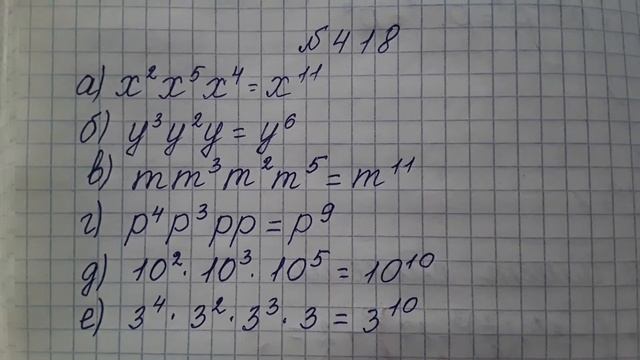 №418
а) x²x⁵x⁴ = x¹¹
б) y³y²y = y⁶
в) mm³m²m⁵ = m¹¹
г) p⁴p³pp = p⁹
д) 10² · 10³ · 10⁵ = 10¹⁰
е) 3⁴ · 3² · 3³ · 3 = 3¹⁰